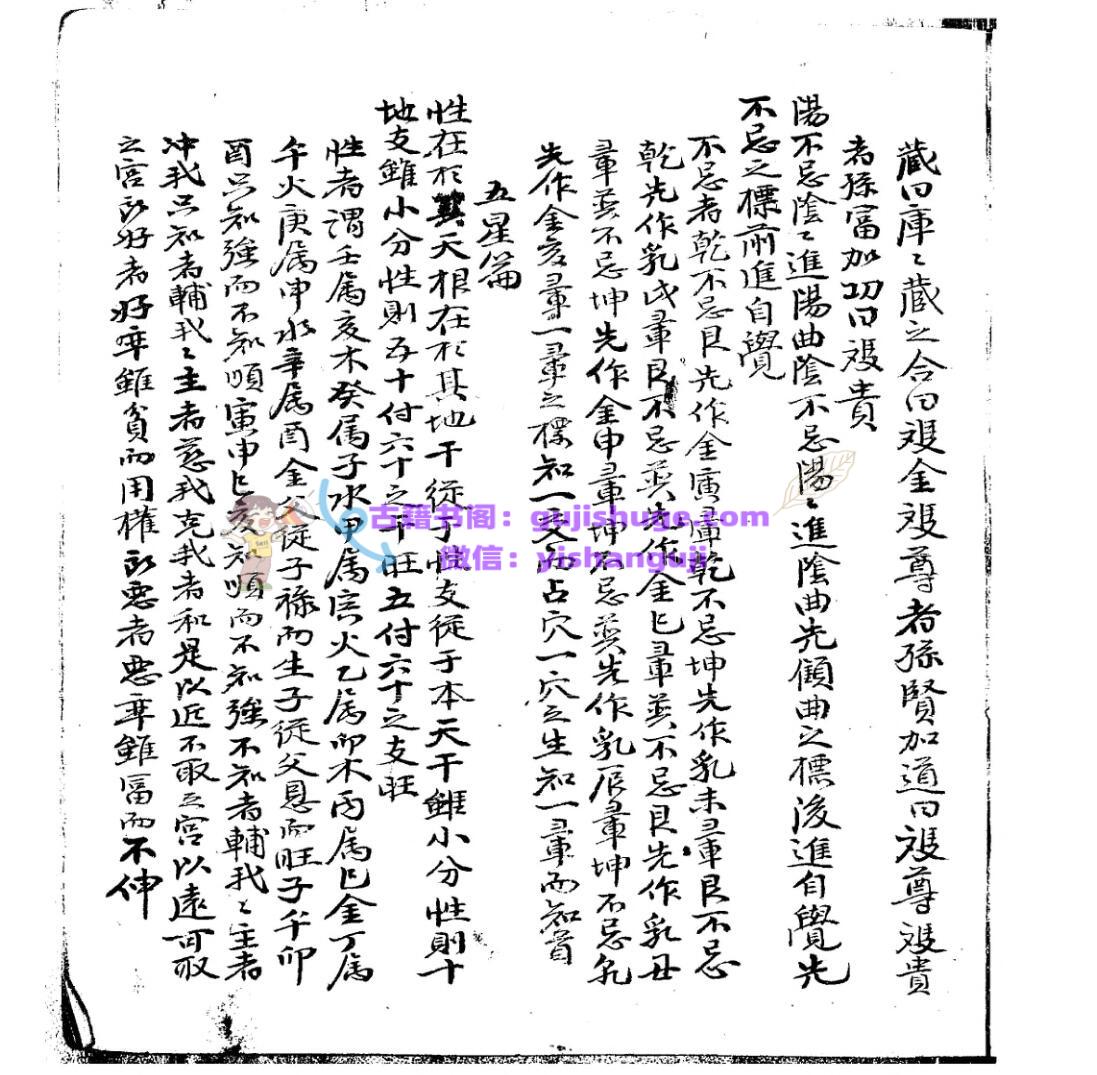 藏曰庫〻藏之合曰祿金祿尊者孫賢加道曰祿尊祿貴
者孫富加功曰祿貴
陽不忌陰〻進陽曲陰不忌陽〻進陰曲先傾曲之標後進自覺先
不忌之標前進自覺
不忌者乾不忌艮先作金寅暈乾不忌坤先作乳未暈艮不忌
乾先作乳戌暈艮不忌巽先作金巳暈巽不忌艮先作乳丑
暈巽不忌坤先作金申暈坤不忌巽先作乳辰暈坤不忌乾
先作金亥暈一暈之標知一天而占穴一穴之生知一暈而知首
五星篇
性在於其天根在於其地干從于性支從于本天干雖小分性則十
地支雖小分性則五十付六十之干旺五付六十之支旺
性者謂壬属亥木癸属子水甲属寅火乙属卯木丙属巳金丁属
午火庚属申水辛属酉金父從子祿而生子從父恩而旺子午卯
酉只知強而不知順寅申巳亥知順而不知強不知者輔我〻主者
冲我只知者輔我〻主者慈我克我者和是以近不取之宮以遠可取
之宮所好者好率雖貧而用權所惡者惡率雖富而不伸
古籍书阁：gujishuge.com
微信：yishanguji